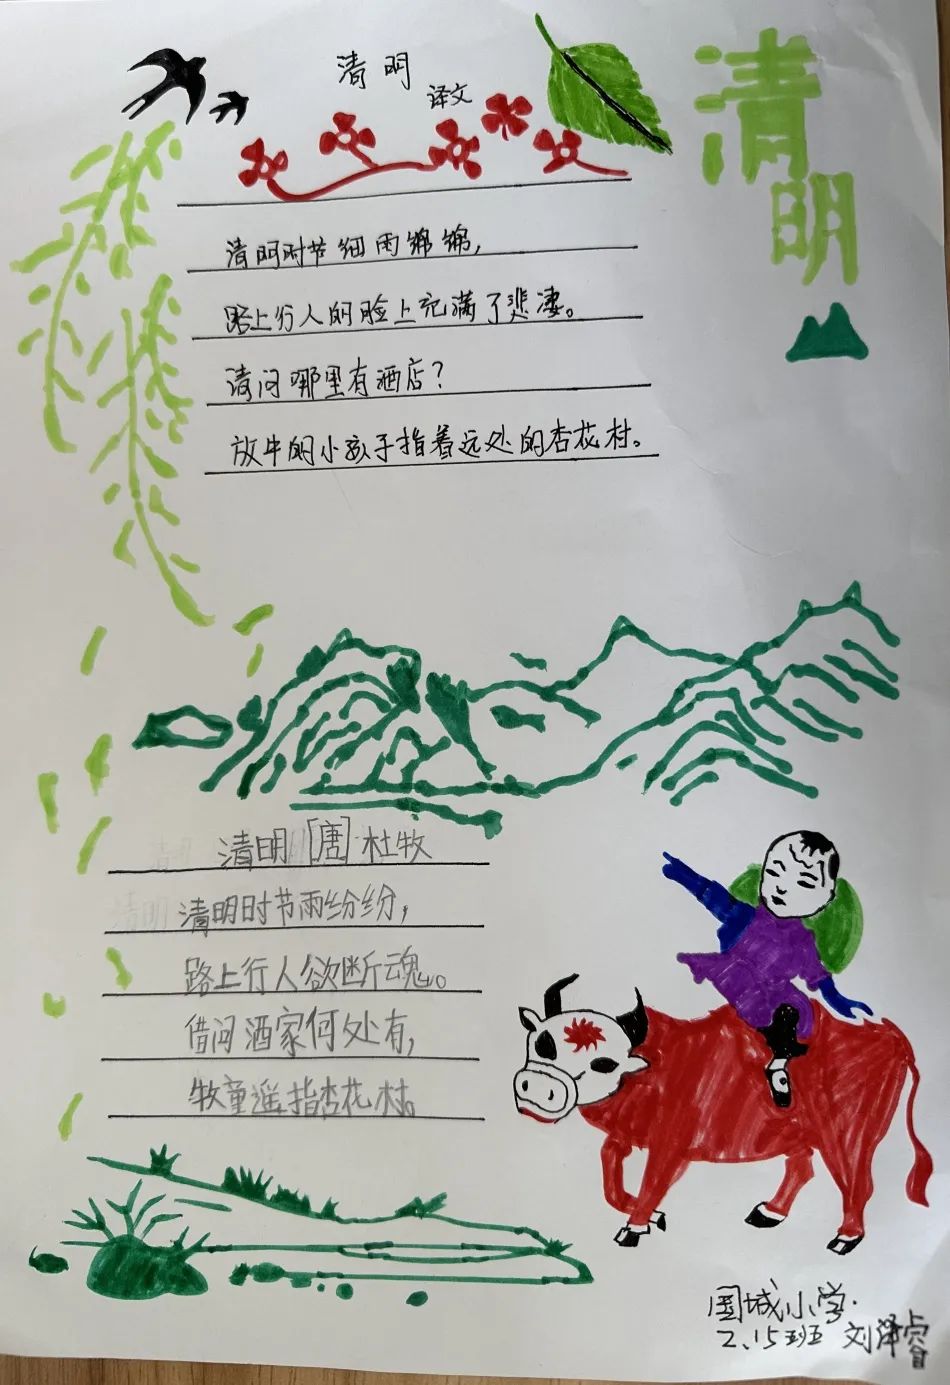 清明
译文
清明
清明时节细雨绵绵，
路上行人的脸上充满了悲凄。
请问哪里有酒店？
放牛的小孩子指着远处的杏花村。
清明[唐]·杜牧
清明时节雨纷纷，
路上行人欲断魂。
借问酒家何处有，
牧童遥指杏花村。
围城小学.
2.15班 刘泽